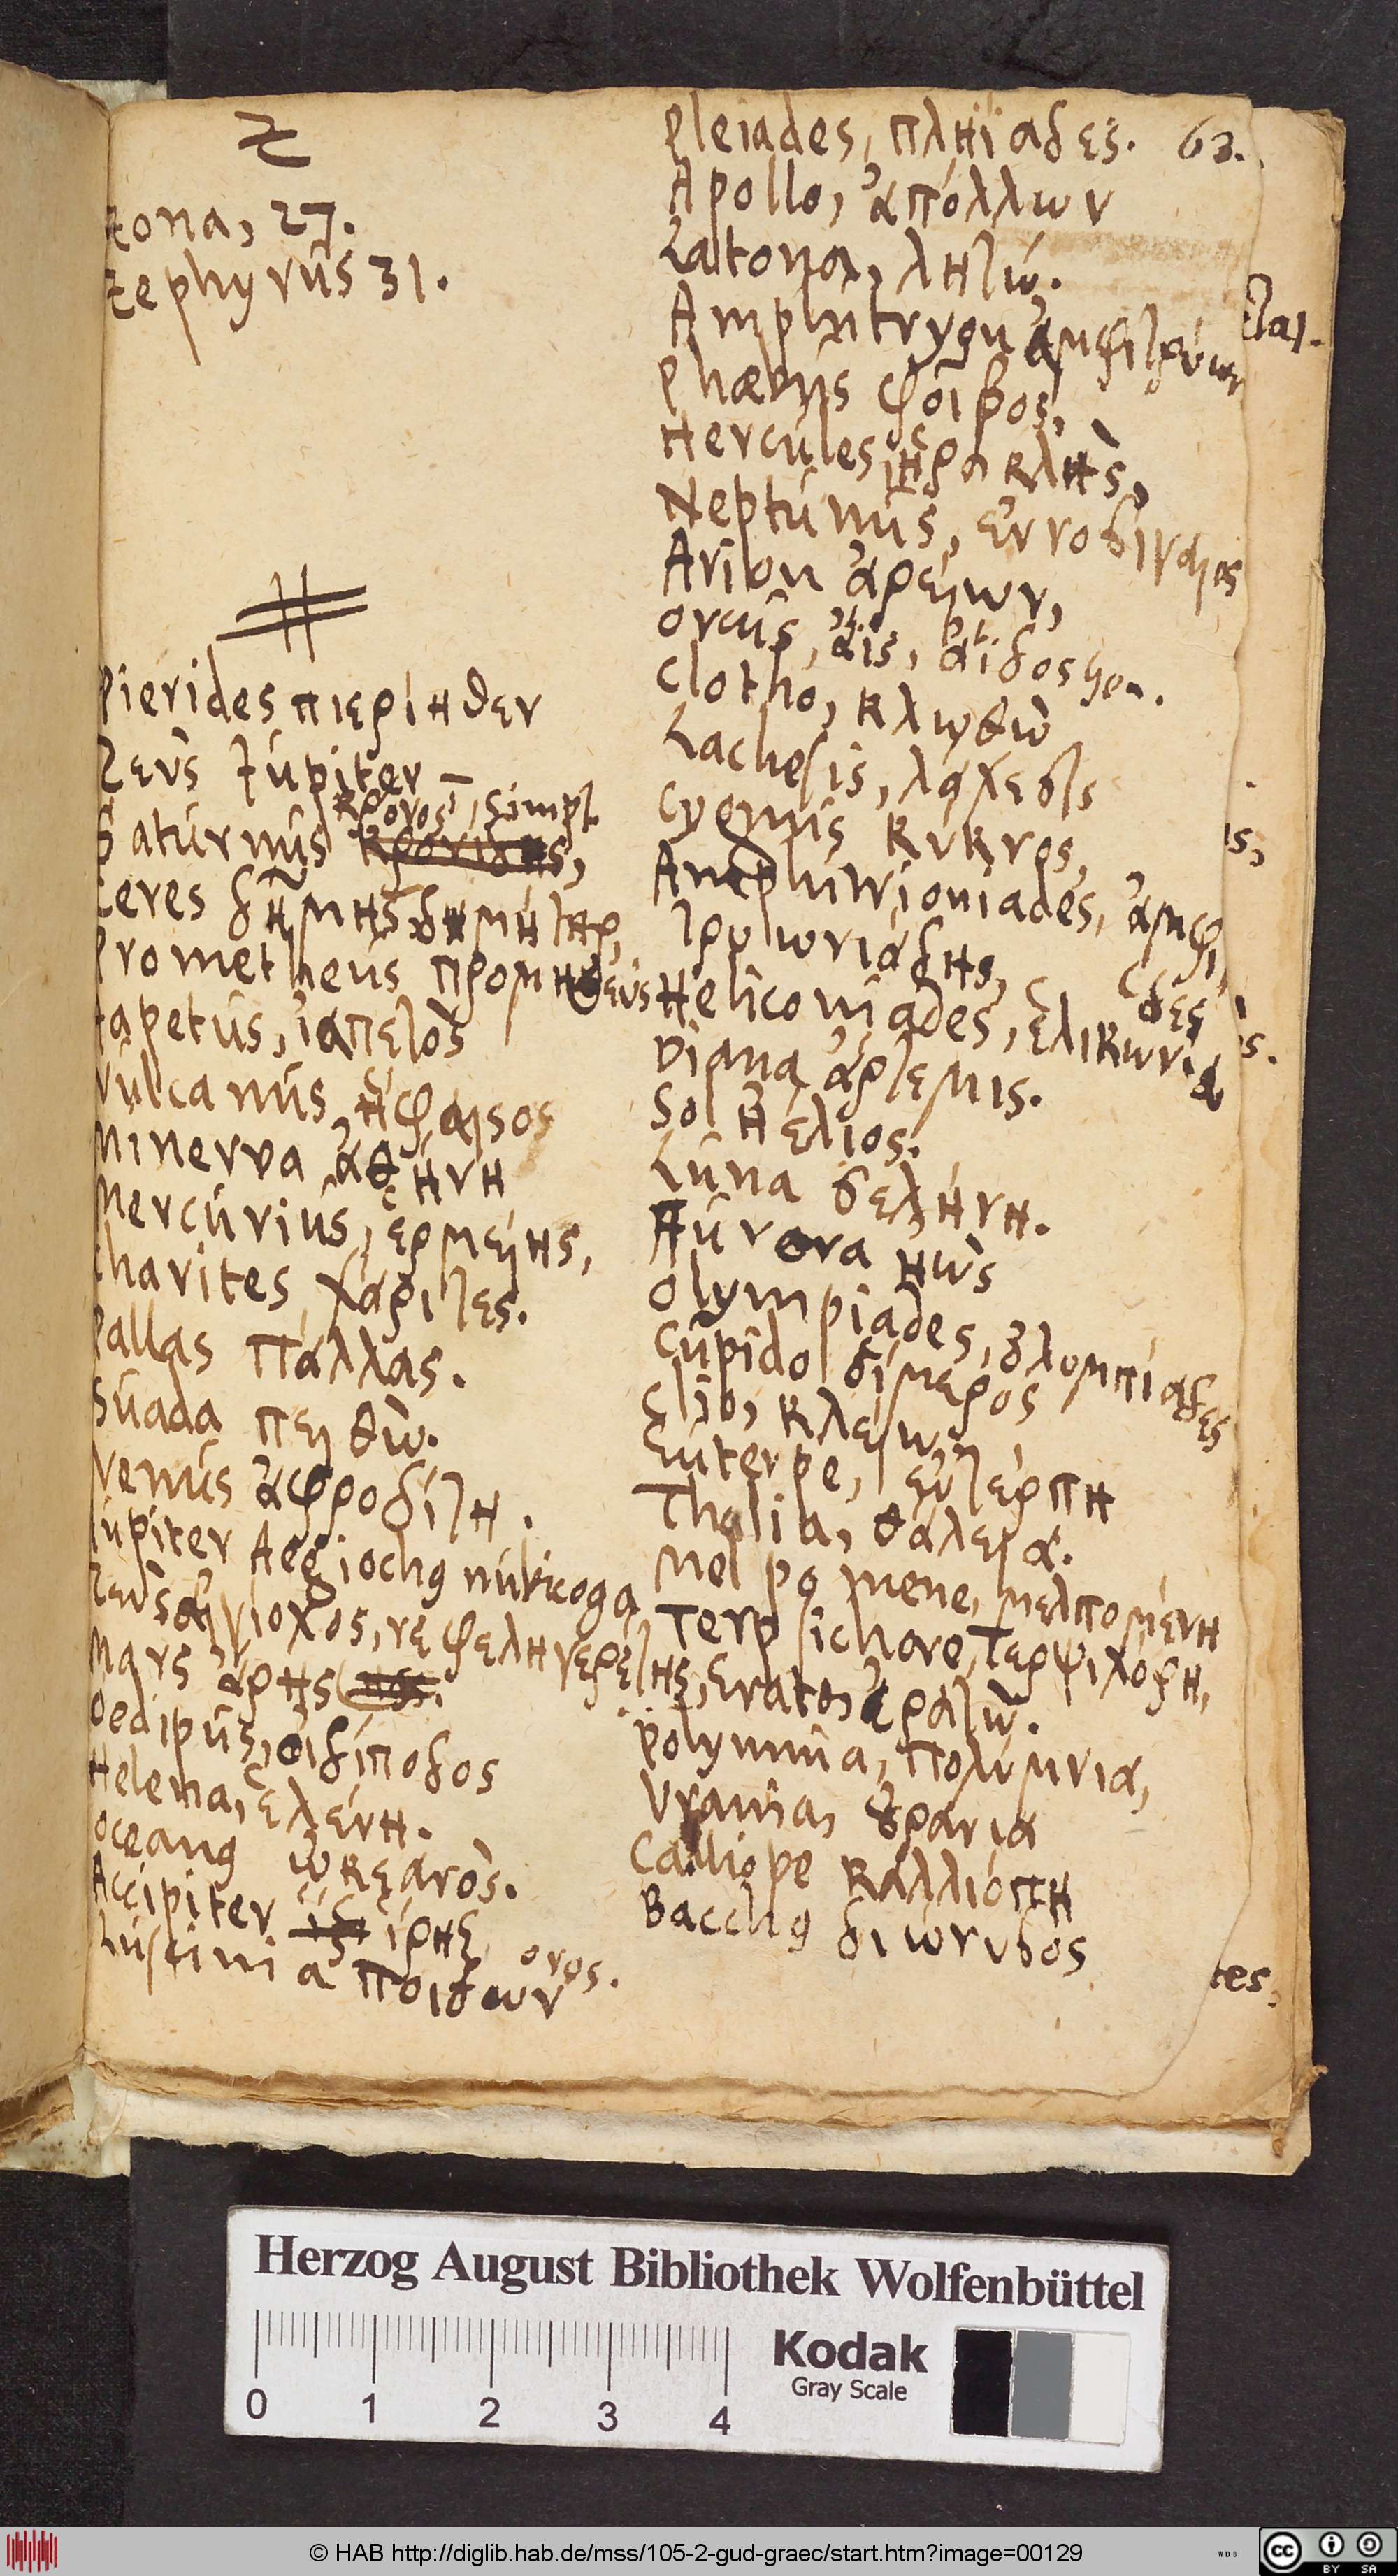 Z
zona, 27.
zephyrus 31.
Pierides πιερίηθεν
Ζεὺς Jupiter
κρόνος, simpl.
Saturnus
Ceres δημής δημήτηρ,
Prometheus προμηθεύς
Iapetus, ἰαπετὸς
Vulcanus, ἥφαιστος
Minerva ἀθήνη
Mercurius, ἑρμείης,
Charites χάριτες.
Pallas Πάλλας.
Suada πειθὼ.
Venus ἀφροδίτη.
Iupiter Aegiochus
Ζεὺς αἰγίοχος, νεφεληγερέτης,
Mars ἄρης
Oedipus, οἰδίποδος
Helena, ἑλένη.
Oceanus ὠκεανὸς.
Accipiter ἴρηξ
ονος.
Luscinia
63.
Pleiades, πληϊαδες.
Apollo, ἀπόλλων
Latona, λητώ.
Amphitryon ἀμφιτρύων
Phœbus φοῖβος,
Hercules, ἡρακλὴς,
Neptunus,
Arion ἀρείων,
Orcus, ἄϊς, ἄϊδος gen.
Clotho, κλωθὼ
Lachesis, λάχεσις
Cygnus κύκνος,
Amphitrioniades, ἀμφι
τρυωνιάδης,
Heliconiades, ἑλικωνιά
δες
Diana ἄρτεμις.
Sol ἠέλιος.
Luna σελήνη.
Aurora ἠὼς
Olympiades, ὀλυμπίαδες
Cupido ἵμερος
Clio, κλειώ,
Euterpe, εὐτέρπη
Thalia, θάλεια.
Melpomene, μελπομένη
Terpsichore, Τερψιχόρη,
Erato, ἐρατὼ.
Polymnia, πολύμνια,
Vrania, ȣρανια
Calliope καλλιόπη
Bacchus διώνυσος
ται.
is,
s.
tes,
Herzog August Bibliothek Wolfenbüttel
0 1 2 3 4
Kodak
Gray Scale
© HAB http://diglib.hab.de/mss/105-2-gud-graec/start.htm?image=00129
WDB
cc BY SA